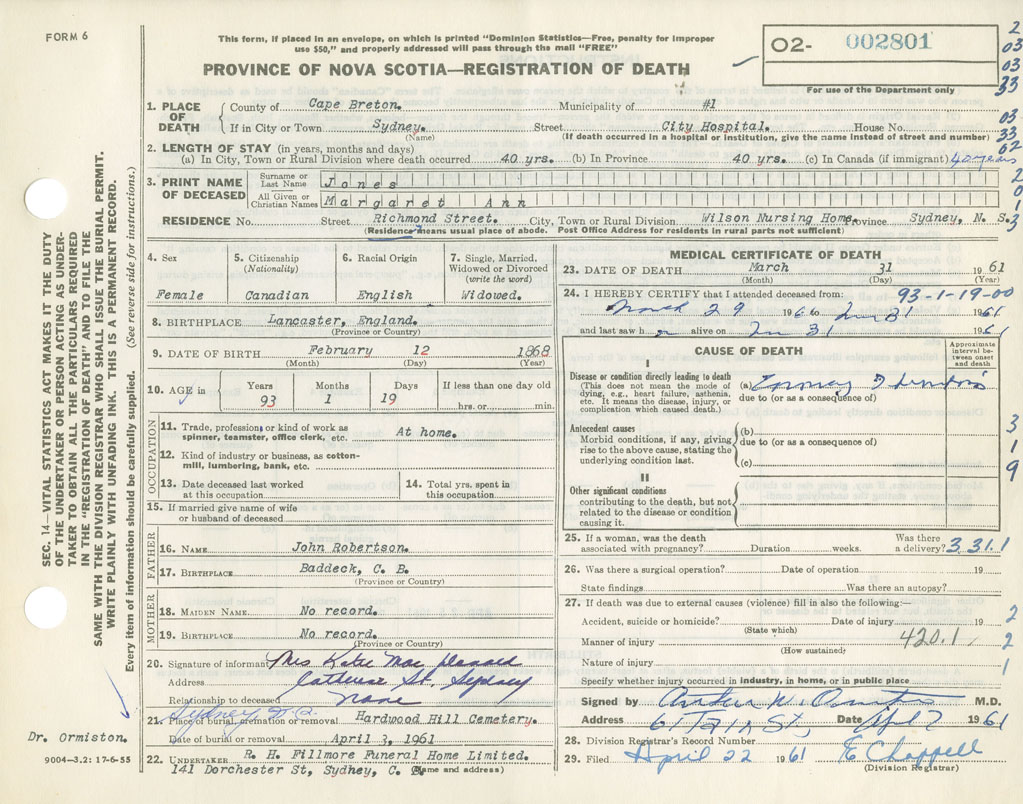 FORM 6
This form, if placed in an envelope, on which is printed "Dominion Statistics—Free, penalty for improper
use $50," and properly addressed will pass through the mail "FREE"
PROVINCE OF NOVA SCOTIA—REGISTRATION OF DEATH
02- 002801
For use of the Department only
2
03
03
33
03
33
02
2
0
1
3
1. PLACE OF DEATH
County of Cape Breton. Municipality of #1
If in City or Town Sydney. Street City Hospital. House No.
(Name) (If death occurred in a hospital or institution, give the name instead of street and number)
2. LENGTH OF STAY (in years, months and days)
(a) In City, Town or Rural Division where death occurred 40 yrs. (b) In Province 40 yrs. (c) In Canada (if immigrant) 40 years
3. PRINT NAME OF DECEASED
Surname or Last Name Jones
All Given or Christian Names Margaret Ann
RESIDENCE No. Street Richmond Street. City, Town or Rural Division Wilson Nursing Home, Province Sydney, N. S.
(Residence means usual place of abode. Post Office Address for residents in rural parts not sufficient)
4. Sex
Female
5. Citizenship
(Nationality)
Canadian
6. Racial Origin
English
7. Single, Married,
Widowed or Divorced
(write the word)
Widowed.
8. BIRTHPLACE Lancaster, England.
(Province or Country)
9. DATE OF BIRTH February 12 1868
(Month) (Day) (Year)
10. AGE in
Years Months Days If less than one day old
93 1 19 hrs. or min.
OCCUPATION
11. Trade, profession or kind of work as
spinner, teamster, office clerk, etc. At home.
12. Kind of industry or business, as cotton-
mill, lumbering, bank, etc.
13. Date deceased last worked
at this occupation
14. Total yrs. spent in
this occupation
15. If married give name of wife
or husband of deceased
FATHER
16. NAME John Robertson.
17. BIRTHPLACE Baddeck, C. B.
(Province or Country)
MOTHER
18. MAIDEN NAME No record.
19. BIRTHPLACE No record.
(Province or Country)
20. Signature of informant Mrs Katie Mac
Address St. Sydney
Relationship to deceased none
21. Place of burial, cremation or removal Hardwood Hill Cemetery.
Sydney
Date of burial or removal April 3, 1961
22. UNDERTAKER R. H. Fillmore Funeral Home Limited.
141 Dorchester St, Sydney, C. B. (Name and address)
MEDICAL CERTIFICATE OF DEATH
23. DATE OF DEATH March 31 1961
(Month) (Day) (Year)
24. I HEREBY CERTIFY that I attended deceased from: 93-1-19-00
March 29 1961 to 31 1961
and last saw h alive on 31 1961
CAUSE OF DEATH
Approximate
interval be-
tween onset
and death
I
Disease or condition directly leading to death
(This does not mean the mode of
dying, e.g., heart failure, asthenia,
etc. It means the disease, injury, or
complication which caused death.)
(a) Coronary
due to (or as a consequence of)
Antecedent causes
Morbid conditions, if any, giving
rise to the above cause, stating the
underlying condition last.
(b)
due to (or as a consequence of)
(c)
3
1
9
II
Other significant conditions
contributing to the death, but not
related to the disease or condition
causing it.
25. If a woman, was the death Was there
associated with pregnancy? Duration weeks. a delivery? 3.31.1
26. Was there a surgical operation? Date of operation 19
State findings Was there an autopsy?
27. If death was due to external causes (violence) fill in also the following:—
Accident, suicide or homicide? Date of injury 19
(State which)
Manner of injury 420.1
(How sustained)
Nature of injury
2
2
1
Specify whether injury occurred in industry, in home, or in public place
Signed by M.D.
Address Date 1961
28. Division Registrar's Record Number
29. Filed April 22 1961 E Chappell
(Division Registrar)
SEC. 14—VITAL STATISTICS ACT MAKES IT THE DUTY
OF THE UNDERTAKER OR PERSON ACTING AS UNDER-
TAKER TO OBTAIN ALL THE PARTICULARS REQUIRED
IN THE "REGISTRATION OF DEATH" AND TO FILE THE
SAME WITH THE DIVISION REGISTRAR WHO SHALL ISSUE THE BURIAL PERMIT.
WRITE PLAINLY WITH UNFADING INK. THIS IS A PERMANENT RECORD.
Every item of information should be carefully supplied. (See reverse side for instructions.)
Dr. Ormiston.
9004—3.2: 17-6-55